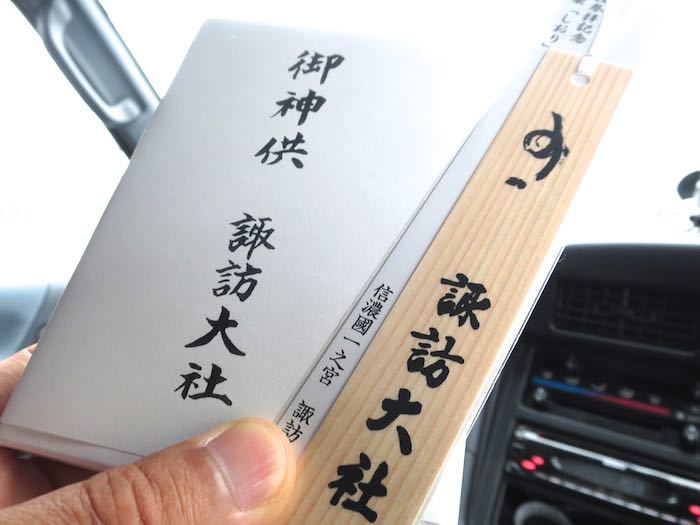 御神供 諏訪大社
信濃國一之宮 諏訪
諏訪大社
参拝記念
「しおり」